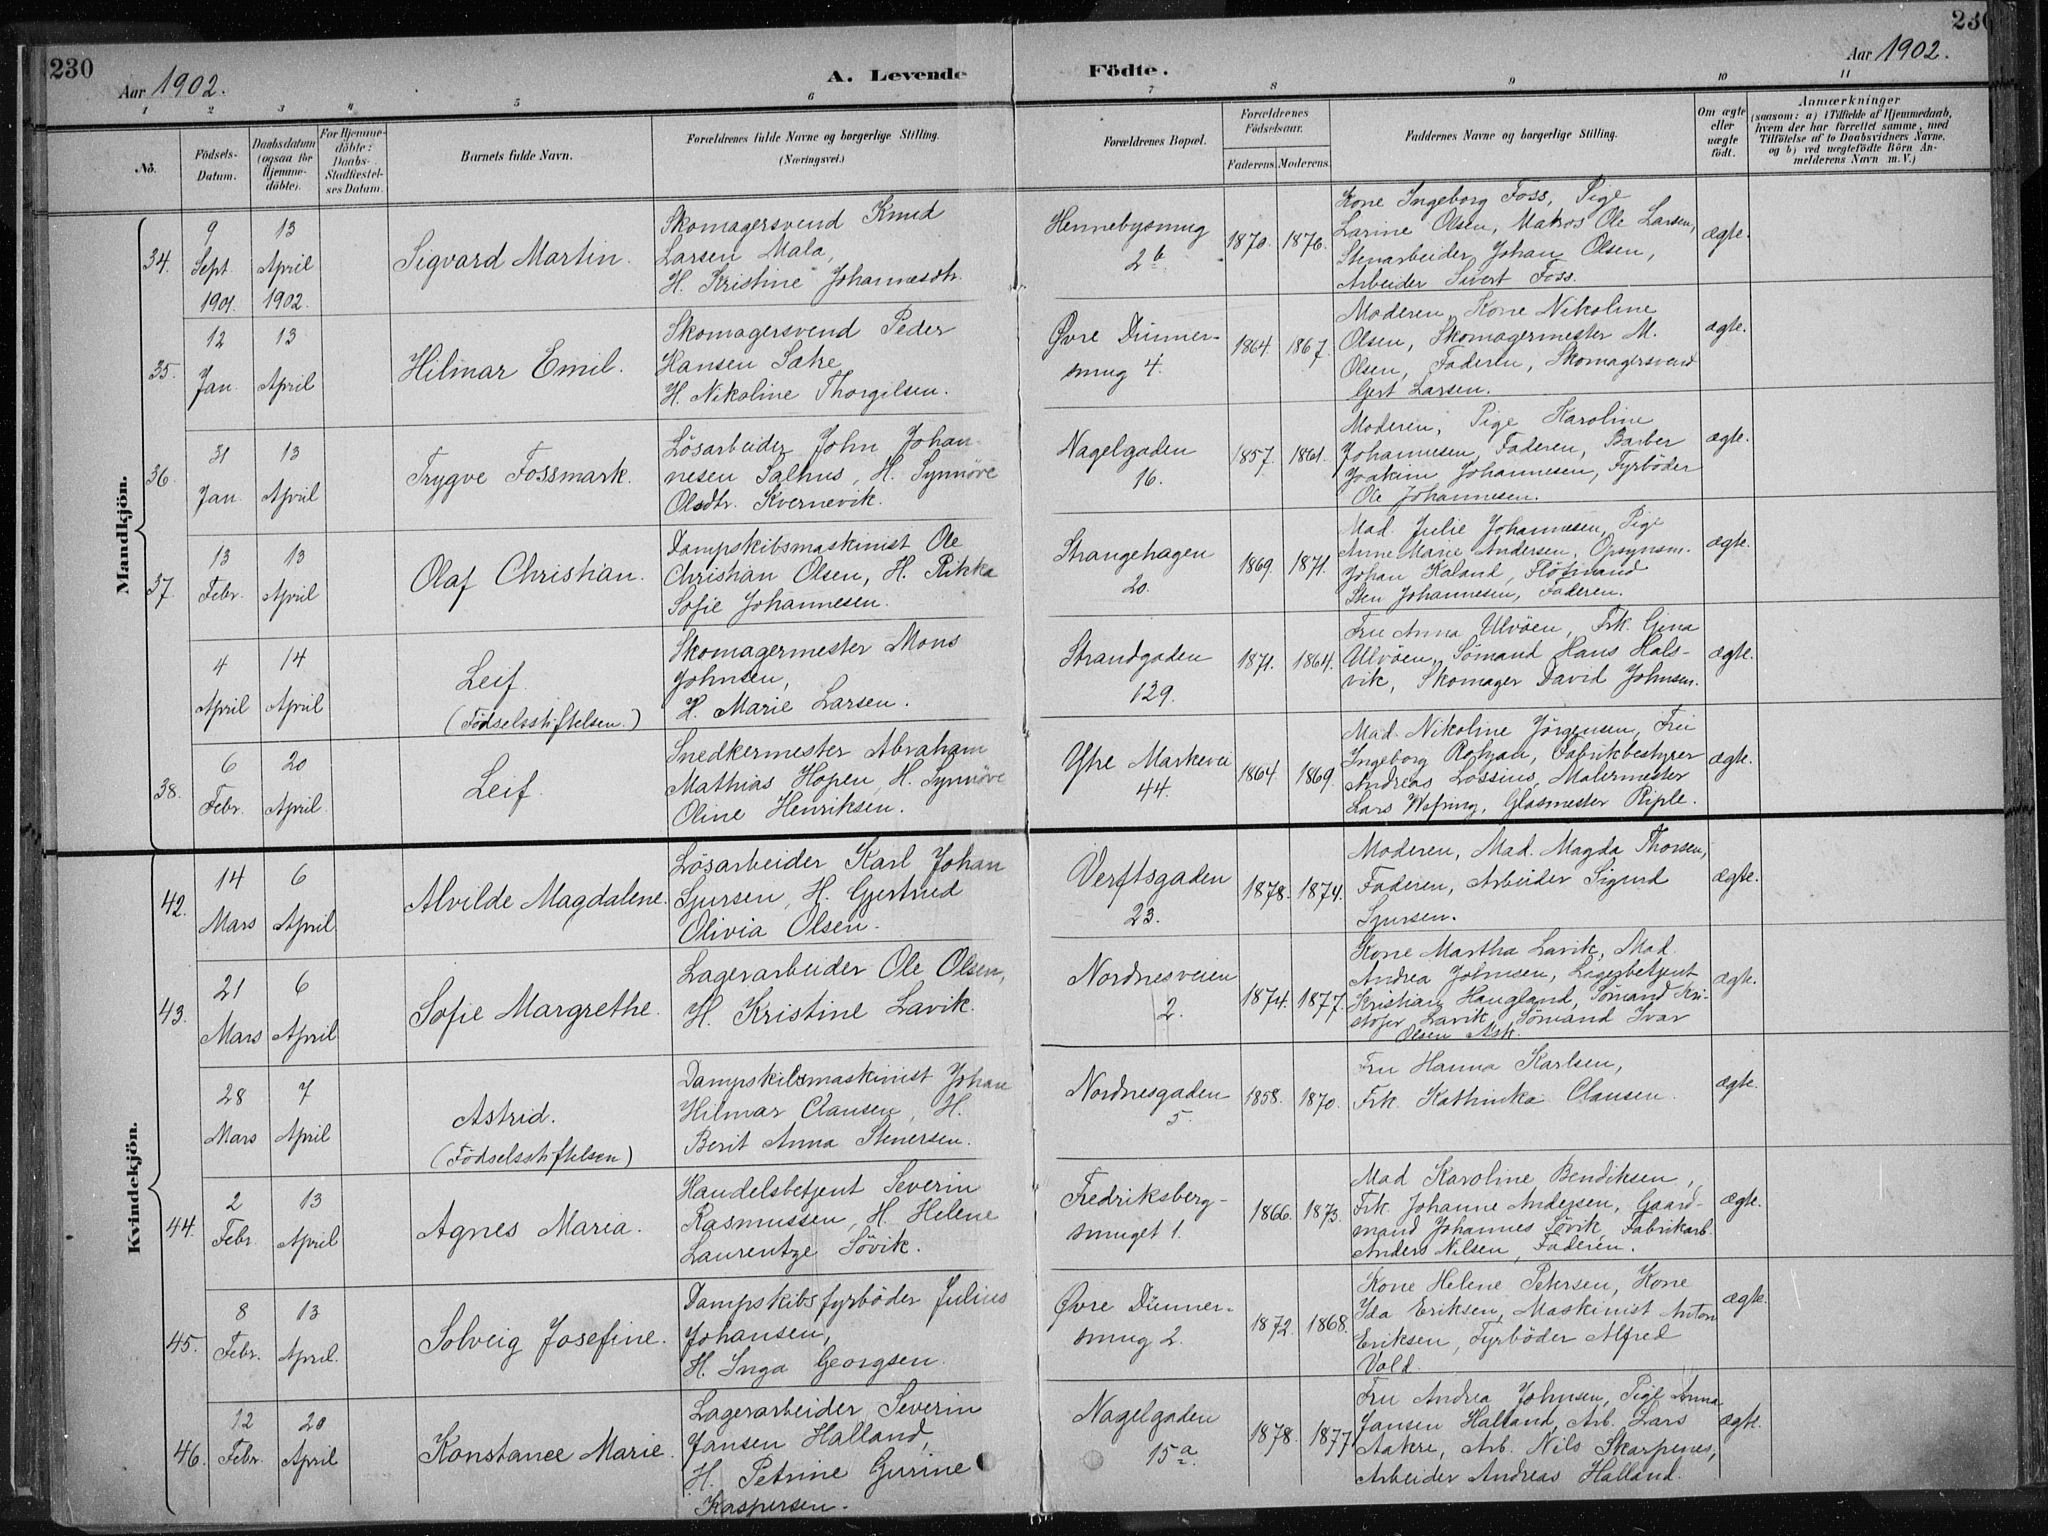 230
230
Aar 1902.
A. Levende
Födte.
Aar 1902.
1 2 3 4 5 6 7 8 9 10 11
No.
Födsels-
Datum.
Daabsdatum
(ogsaa for
Hjemme-
döbte).
For Hjemme-
döbte:
Daabs-
Stadfæstel-
ses Datum.
Barnets fulde Navn.
Forældrenes fulde Navne og borgerlige Stilling.
(Næringsvei.)
Forældrenes Bopæl.
Forældrenes
Födselsaar.
Faderens. Moderens.
Faddernes Navne og borgerlige Stilling.
Om ægte
eller
uægte
födt.
Anmærkninger
(saasom: a) i Tilfælde af Hjemmedaab,
hvem der har forrettet samme, med
Tilföielse af to Daabsvidners Navne,
og b) ved uægtefödte Börn An-
melderens Navn m.V.)
Mandkjön.
34.
9
Sept
1901
13
April
1902.
Sigvard Martin.
Skomagersvend Knud
Larsen Mala,
H. Kristine Johannesdtr.
Hennebysmug
2b
1870. 1876.
Kone Ingeborg Foss, Pige
Larine Olsen, Matros Ole Larsen,
Stenarbeider Johan Olsen,
Arbeider Sivert Foss.
ægte.
35.
12
Jan.
13
April
Hilmar Emil.
Skomagersvend Peder
Hansen Satre
H. Nikoline Thorgilsen.
Øvre Dünner-
smug 4.
1864. 1867.
Moderen, Kone Nikoline
Olsen, Skomagermester M.
Olsen, Faderen, Skomagersvend
Gert Larsen.
ægte.
36.
31
Jan.
13
April
Trygve Fossmark.
Lösarbeider John Johan-
nesen Salhus, H. Synnöve
Olsdtr. Kvernevik.
Nagelgaden
16.
1857. 1861.
Moderen, Pige Karoline
Johannesen, Faderen, Barber
Joakim Johannesen, Fyrböder
Ole Johannesen.
ægte.
37.
13
Febr.
13
April
Olaf Christian.
Dampskibsmaskinist Ole
Christian Olsen, H. Rikka
Sofie Johannesen.
Strangehagen
20.
1869. 1871.
Mad. Julie Johannesen, Pige
Anne Marie Andersen, Opsynsm.
Johan Kaland, Flötmand
Sten Johannesen, Faderen.
ægte.
4
April
14
April
Leif.
(Födselsstiftelsen.)
Skomagermester Mons
Johnsen,
H. Marie Larsen.
Strandgaden
129.
1871. 1864.
Fru Anna Ulvöen, Frk. Gina
Ulvöen, Sömand Hans Hals-
vik, Skomager David Johnsen.
ægte.
38.
6
Febr.
20
April
Leif.
Snedkermester Abraham
Mathias Hopen, H. Synnöve
Oline Henriksen.
Ytre Markevei
44.
1864. 1869.
Mad. Nikoline Jörgensen, Fru
Ingeborg, Fabrikbestyrer
Andreas Lossius, Malermester
Lars Wefring, Glasmester Riple.
ægte.
Kvindekjön.
42.
14
Mars
6
April
Alvilde Magdalene.
Lösarbeider Karl Johan
Sjursen, H. Gjertrud
Olivia Olsen.
Verftsgaden
23.
1878. 1874.
Moderen, Mad. Magda Thorsen,
Faderen, Arbeider Sigurd
Sjursen.
ægte.
43.
21
Mars
6
April
Sofie Margrethe.
Lagerarbeider Ole Olsen,
H. Kristine Lavik.
Nordnesveien
2.
1874. 1877.
Kone Martha Lavik, Mad.
Andrea Johnsen, Lagerbetjent
Kristian Haugland, Sömand Kri-
stofer Lavik, Sömand Ivar
Olsen Ask.
ægte.
28
Mars
7
April
Astrid.
(Födselsstiftelsen)
Dampskibsmaskinist Johan
Hilmar Clausen, H.
Berit Anna Stenersen.
Nordnesgaden
5.
1858. 1870.
Fru Hanna Karlsen,
Frk. Kathinka Clausen.
ægte.
44.
2
Febr.
13
April
Agnes Maria.
Handelsbetjent Severin
Rasmussen, H. Helene
Laurentze Sövik.
Fredriksberg-
smuget 1.
1866. 1873.
Mad Karoline Bendiksen,
Frk. Johanne Andersen, Gaard-
mand Johannes Sövik, Fabrikarb.
Anders Nilsen, Faderen.
ægte.
45.
8
Febr.
13
April.
Solveig Josefine.
Dampskibsfyrböder Julius
Johansen,
H. Inga Georgsen.
Øvre Dünner-
smug 2.
1872. 1868.
Kone Helene Petersen, Kone
Ida Eriksen, Maskinist Anton
Eriksen, Fyrböder Alfred
Vold.
ægte.
46.
12
Febr.
20
April
Konstance Marie.
Lagerarbeider Severin
Jansen Halland,
H. Petrine Gurine
Kaspersen.
Nagelgaden
15a.
1878. 1877
Fru Andrea Johnsen, Pige Anna
Jansen Halland, Arb. Lars
Aakre, Arb. Nils Skarpenes,
Arbeider Andreas Halland.
ægte.